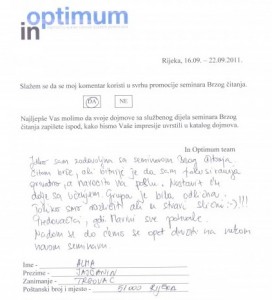 in optimum
Rijeka, 16.09. – 22.09.2011.
Slažem se da se moj komentar koristi u svrhu promocije seminara Brzog čitanja.
DA NE
Najljepše Vas molimo da svoje dojmove sa službenog dijela seminara Brzog
čitanja zapišete ispod, kako bismo Vaše impresije uvrstili u katalog dojmova.
In Optimum team
Jako sam zadovoljna sa seminarom brzog čitanja.
Čitam brže, ali bitnije je da sam fokusirana
prostor, a naročito na poslu. Nastavit ću
dalje sa vježbom. Grupa je bila odlična.
Toliko smo različiti ali u stvari slični :-)!!!
Predavačici, gđi Marini sve pohvale.
Nadam se da ćemo se opet družiti na nekom
novom seminaru.
Ime - ALMA
Prezime -
Zanimanje - TRGOVAC
Poštanski broj i mjesto - 51000 Rijeka